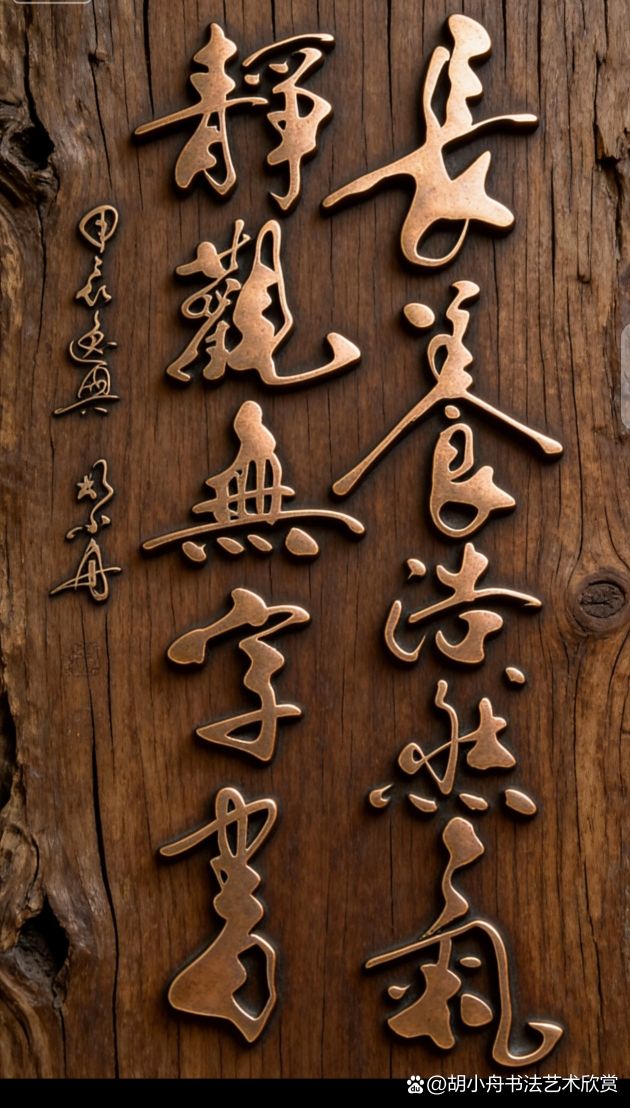 長養浩然氣
靜觀無字書
甲辰 胡小舟
@胡小舟书法艺术欣赏